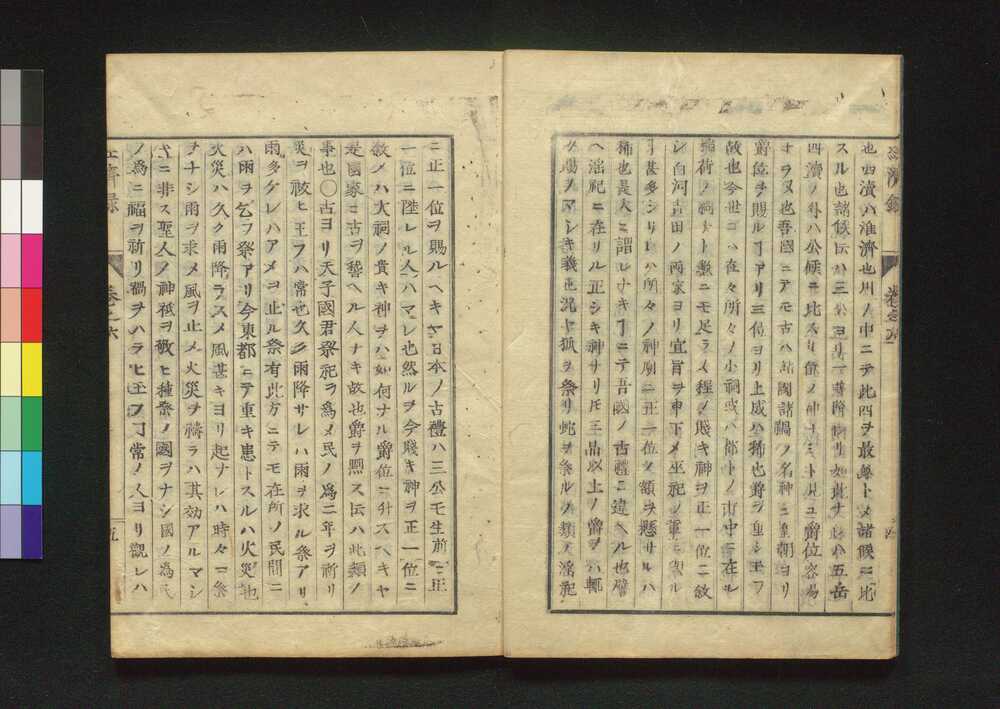 也四瀆ハ淮濟也川ノ中ニテ此四ヲ最尊トメ諸候ニ比
スル也諸候伝ハ三公ヨリ一等降リ如此ナレハ五岳
四瀆ノ外ハ公候ニ比スリ位ノ神ナシト見ユ爵位容易
ナラヌ也吾國ニテモ古ハ諸國諸鄉ノ名神ニ皇朝ヨリ
爵位ヲ賜ルヿアリ三位ヨリ上成ハ稀也爵ヲ重シ玉フ
故也今世ニハ在々所々ノ小祠或ハ都下ノ市中ニ在ル
稲荷ノ祠ナト數ニモ足ラヌ程ノ賎キ神ヲ正一位ニ敘
シ白河吉田ノ両家ヨリ宣旨ヲ申下メ巫祀ノ軍
ヿ甚多シ
ハ所々ノ神廟ニ正一位ノ額ヲ懸サルハ
稀也是大ニ謂レナキヿニテ吾國ノ古禮ニ違ヘル也譬
ヘ淫祀ニ在リル正シキ神サリ
三品以上ノ爵ヲハ輒
ク賜フマシキ義也况ヤ狐ヲ祭リ蛇ヲ祭ルノ類ノ淫祀
ニ正一位ヲ賜ルヘキヤ日本ノ古禮ハ三公モ生前ニ正
一位ニ陞レル人ハマレ也然ルヲ今賎キ神ヲ正一位ニ
敘メハ大祠ノ貴キ神ヲハ如何ナル爵位ニ升スヘキヤ
是國家ニ古ヲ稽ヘル人ナキ故也爵ヲ黷ス伝ハ此類ノ
事也〇古ヨリ天子國君祭祀ヲ為メ民ノ為ニ年ヲ祈リ
災ヲ祓ヒ玉フハ常也久ク雨降サレハ雨ヲ求ル祭アリ
雨多ケレハアメヲ止ル祭有此方ニテモ在所ノ民間ニ
ハ雨ヲ乞フ祭アリ今東都ニテ重キ患トスルハ火災也
火災ハ久ク雨降ラスメ風甚キヨリ起ナレハ時々ニ祭
ヲナシ雨ヲ求メ風ヲ止メ火災ヲ禱ラハ其効アルマシ
キニ非ス聖人ノ神祇ヲ敬ヒ種々ノ國ヲナシ國ノ為民
ノ為ニ福ヲ祈リ禍ヲハラヒ玉フヿ常ノ人ヨリ觀レハ
卷之六